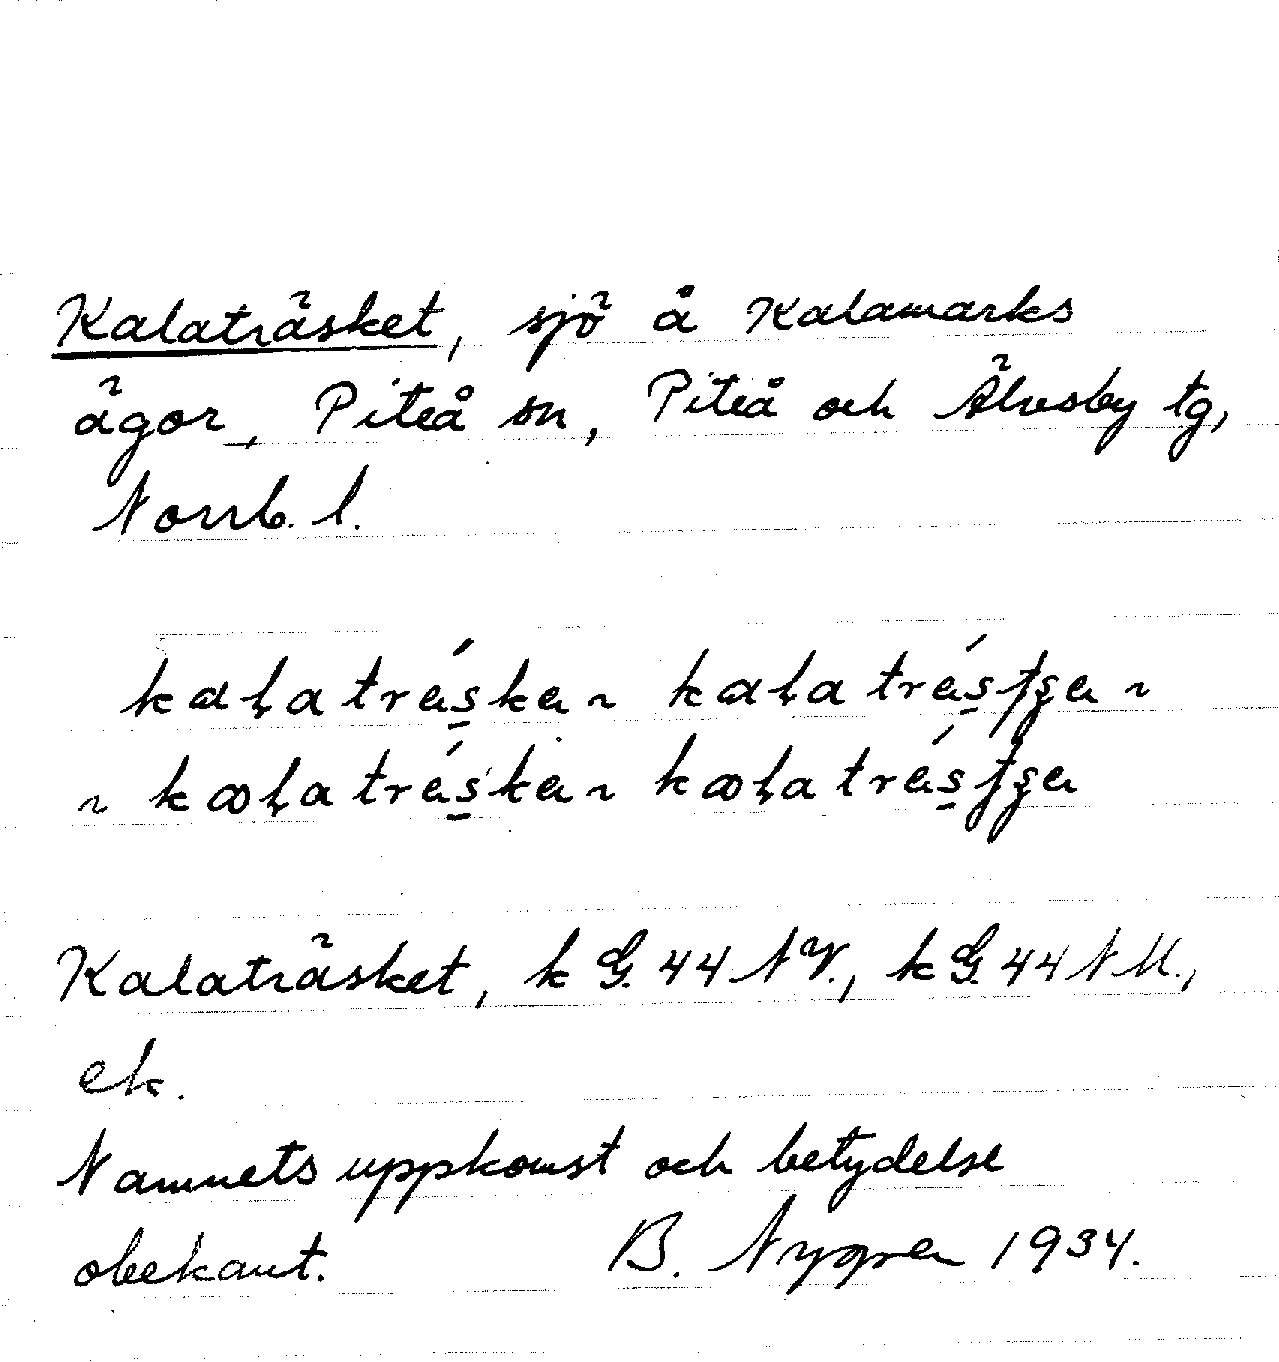 Kalaträsket, sjö å Kalamarks
ägor, Piteå sn, Piteå och Älvsby tg,
Norrb. l.
Kalaträsket, k G. 44 NV., k G. 44 N
ek.
Namnets uppkomst och betydelse
obekant. B. Nygren 1934.